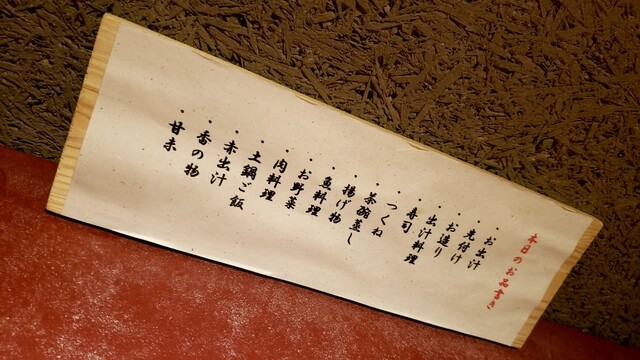 本日のお品書き
・お出汁
・先付け
・お造り
・出汁料理
・寿司
・つくね
・茶碗蒸し
・揚げ物
・魚料理
・お野菜
・肉料理
・土鍋ご飯
・赤出汁
・香の物
・甘未